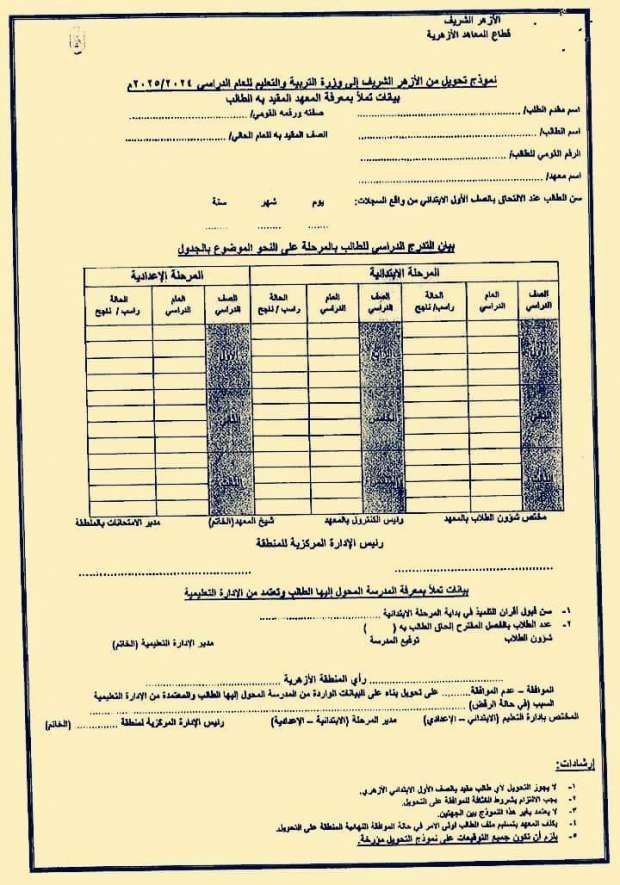 الأزهر الشريف
قطاع المعاهد الأزهرية
نموذج تحويل من الأزهر الشريف إلى وزرة التربية والتعليم للعام الدراسي ٢٠٢٥/٢٠٢٤م
بيانات تملأ بمعرفة المعهد المقيد به الطالب
اسم مقدم الطلب/ ........ صفته ورقمه القومي/ ........
اسم الطالب/ ........ الصف المقيد به للعام الحالي/ ........
الرقم القومي للطالب/ ........
اسم معهد/ ........
سن الطالب عند الالتحاق بالصف الأول الابتدائي من واقع السجلات: يوم شهر سنة
بيان التدرج الدراسي للطالب بالمرحلة على النحو الموضوع بالجدول
المرحلة الابتدائية المرحلة الإعدادية
الصف الدراسي العام الدراسي الحالة راسب/ ناجح الصف الدراسي العام الدراسي الحالة راسب / ناجح الصف الدراسي العام الدراسي الحالة راسب / ناجح
الأول الرابع الأول
الثاني الخامس الثاني
الثالث السادس الثالث
مختص شؤون الطلاب بالمعهد رئيس الكنترول بالمعهد شيخ المعهد(الخاتم) مدير الامتحانات بالمنطقة
رئيس الإدارة المركزية للمنطقة
بيانات تملأ بمعرفة المدرسة المحول إليها الطالب وتعتمد من الإدارة التعليمية
١- سن قبول أقران التلميذ في بداية المرحلة الابتدائية ........
٢- عدد الطلاب بالفصل المقترح إلحاق الطالب به ( )
شؤون الطلاب توقيع المدرسة مدير الإدارة التعليمية (الخاتم)
رأي المنطقة الأزهرية
الموافقة – عدم الموافقة........ على تحويل بناء على البيانات الواردة من المدرسة المحول إليها الطالب والمعتمدة من الإدارة التعليمية
السبب (في حالة الرفض) ........
المختص بإدارة التعليم (الابتدائي – الإعدادي) مدير المرحلة (الابتدائية – الإعدادية) رئيس الإدارة المركزية لمنطقة ........ (الخاتم)
إرشادات:
١- لا يجوز التحويل لأي طالب مقيد بالصف الأول الابتدائي الأزهري.
٢- يجب الالتزام بشروط الكثافة للموافقة على التحويل.
٣- لا يعتمد بغير هذا النموذج بين الجهتين.
٤- يكلف المعهد بتسليم ملف الطالب لولى الامر في حالة الموافقة النهائية المنطقة على التحويل.
٥- يلزم أن تكون جميع التوقيعات على نموذج التحويل مؤرخة.